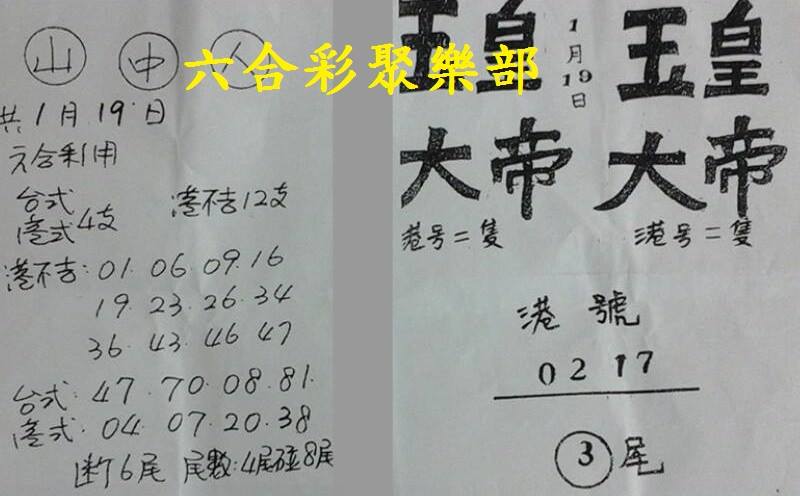 六合彩聚樂部
山 中 人
共1月19日
六合利用
台式
港式4支 港不吉12支
港不吉:01.06.09.16
19.23.26.34
36.43.46.47
台式:47.70.08.81.
港式:04.07.20.38
断6尾 尾數:4尾碰8尾
玉皇 1月19日 玉皇
大帝 大帝
港号二隻 港号二隻
港 號
02 17
3 尾